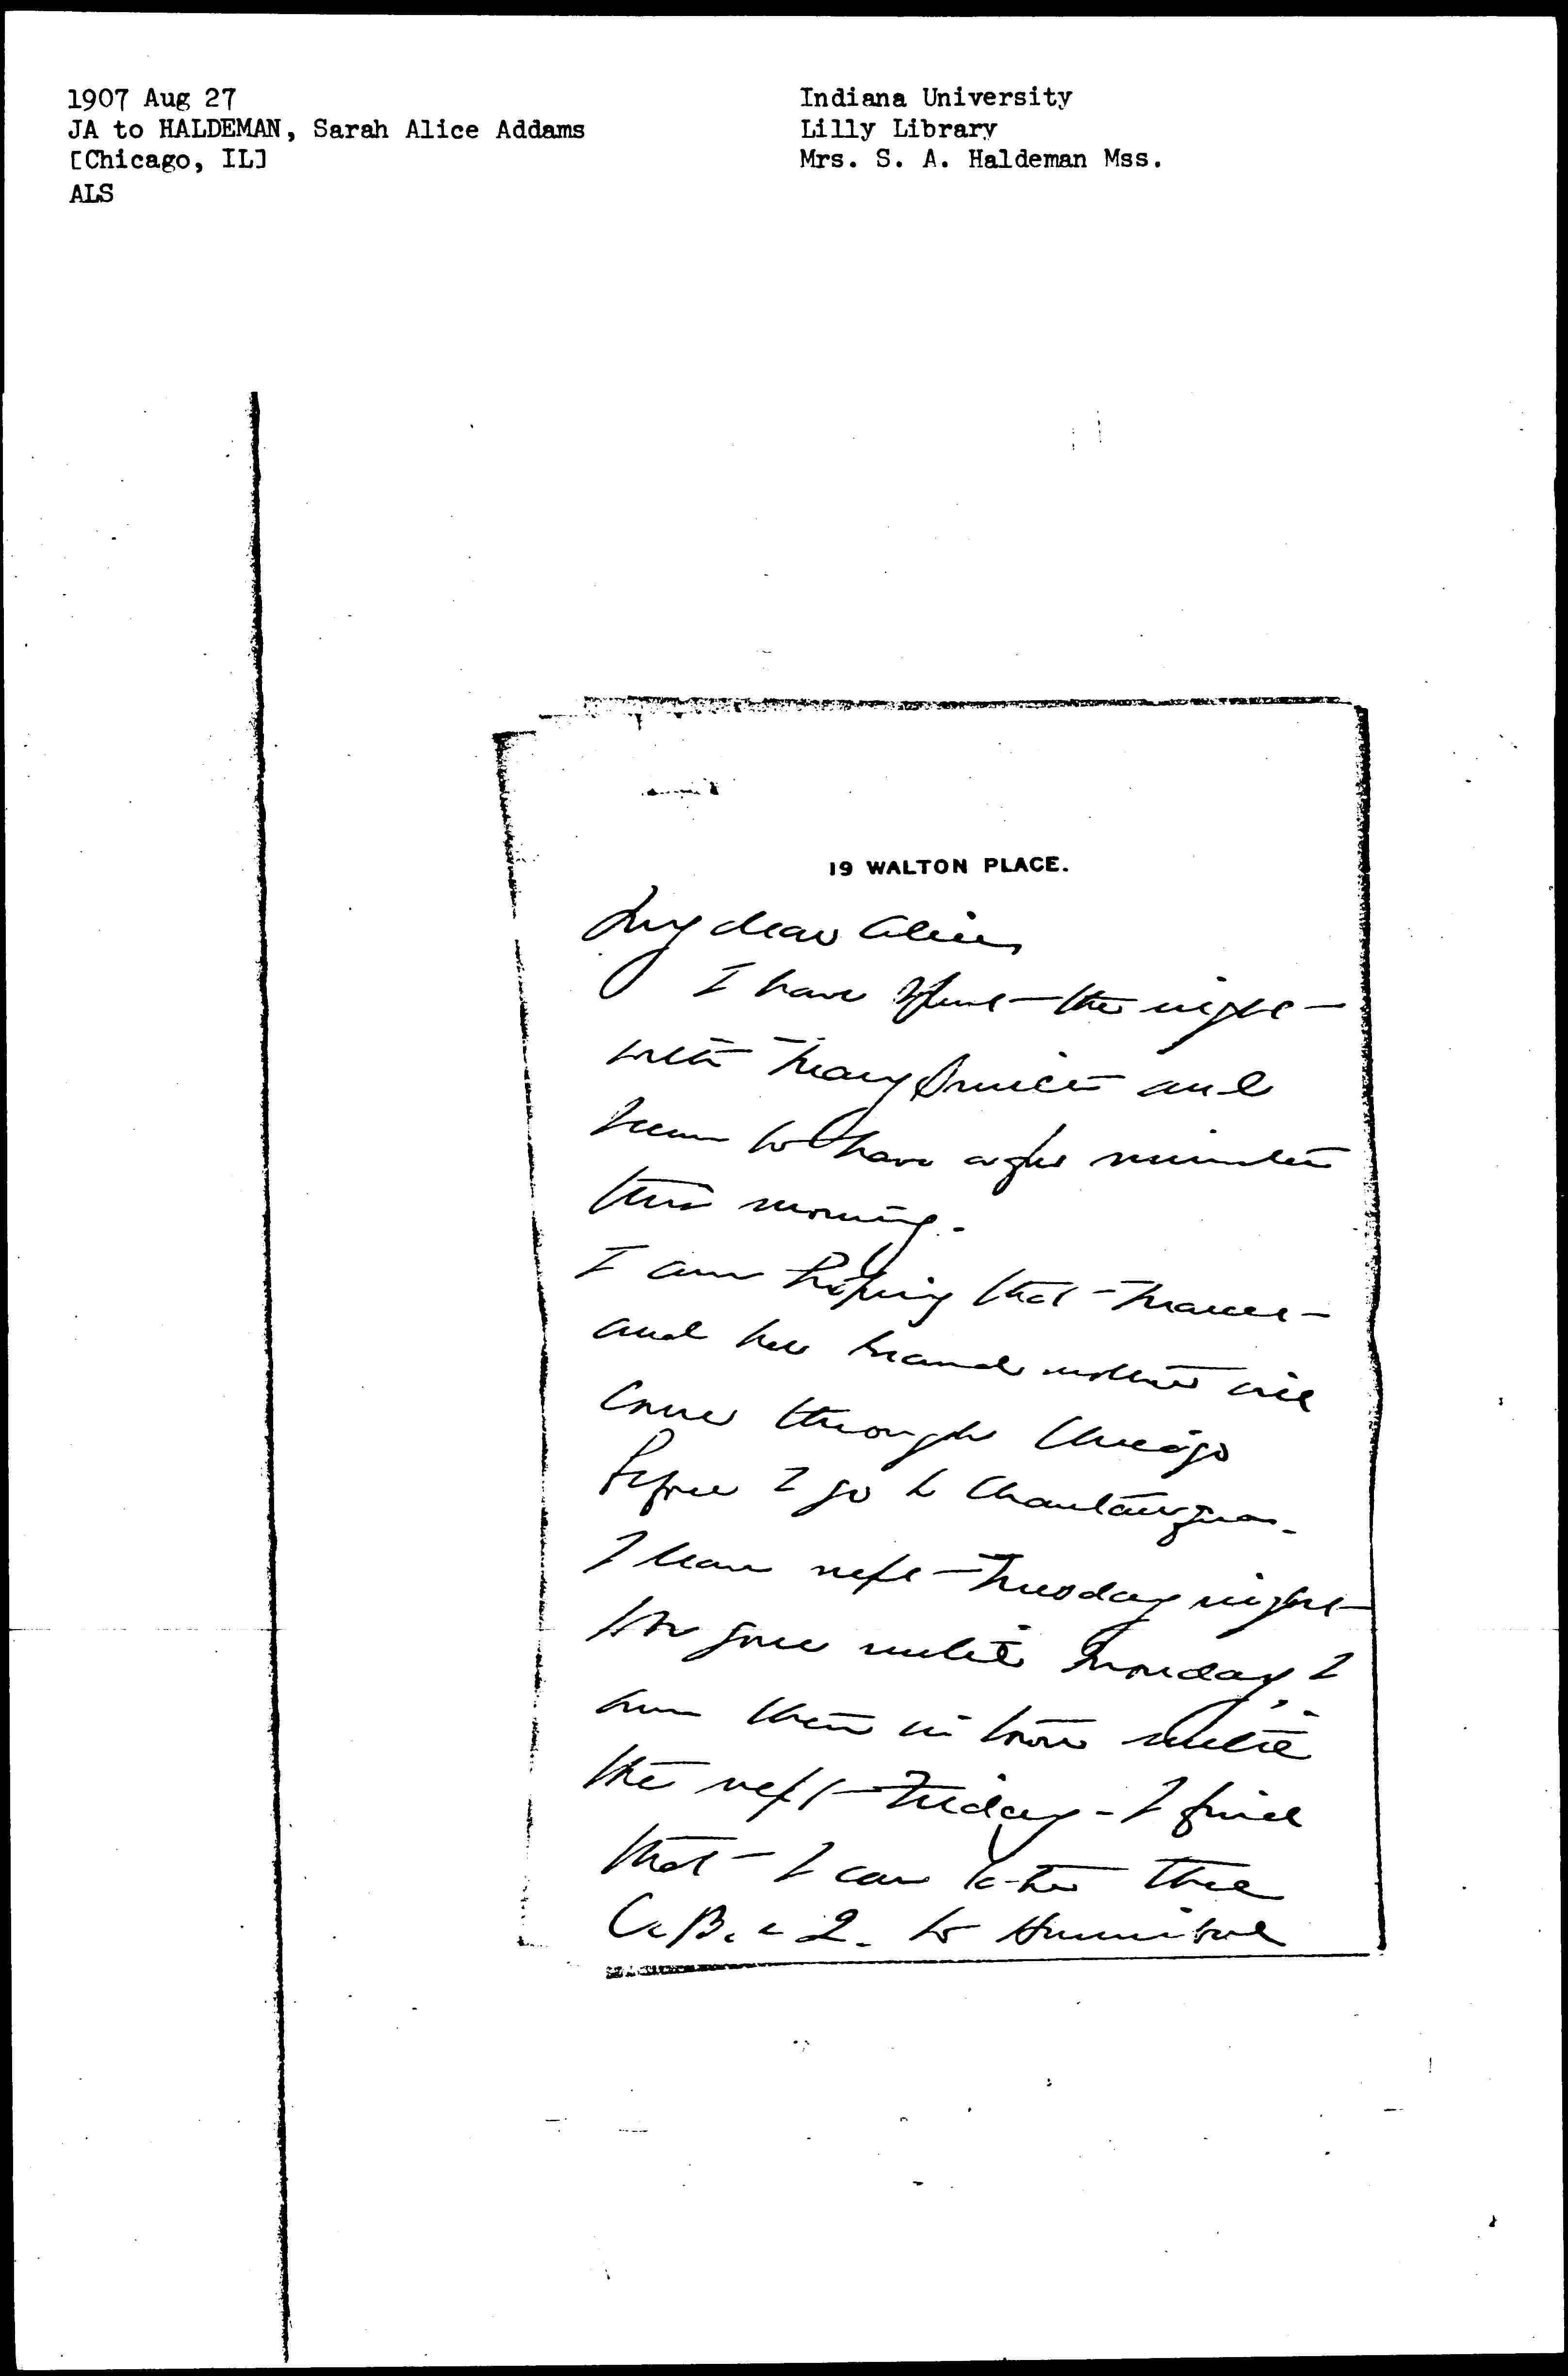 1907 Aug 27
JA to HALDEMAN, Sarah Alice Addams
[Chicago, IL]
ALS
Indiana University
Lilly Library
Mrs. S. A. Haldeman Mss.
19 WALTON PLACE.
My dear Alice
I have spent the night
with Mary Smith and
seem to have a few minutes
this morning.
I am hoping that Marcet
and her Grandmother will
come through Chicago
before I go to Chautauqua.
I leave next Tuesday night
 gone until Monday, I
am then in town until
the next Friday - I find
that I can take the
C. B. & Q. to